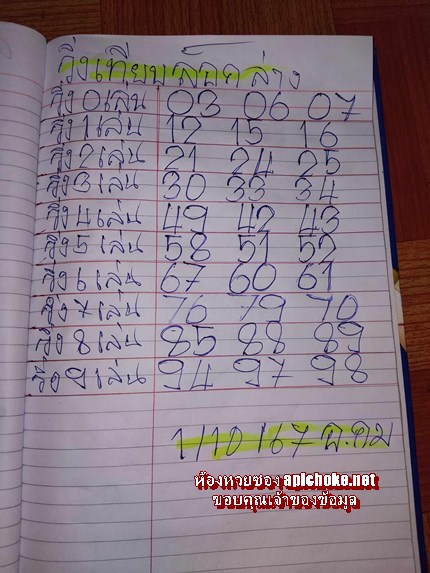 วิ่งเทียบล๊อคล่าง
วิ่ง 0 เล่น 03 06 07
วิ่ง 1 เล่น 12 15 16
วิ่ง 2 เล่น 21 24 25
วิ่ง 3 เล่น 30 33 34
วิ่ง 4 เล่น 49 42 43
วิ่ง 5 เล่น 58 51 52
วิ่ง 6 เล่น 67 60 61
วิ่ง 7 เล่น 76 79 70
วิ่ง 8 เล่น 85 88 89
วิ่ง 9 เล่น 94 97 98
1/10/67 ต.คม
ห้องหวยซอง apichoke.net
ขอบคุณเจ้าของข้อมูล